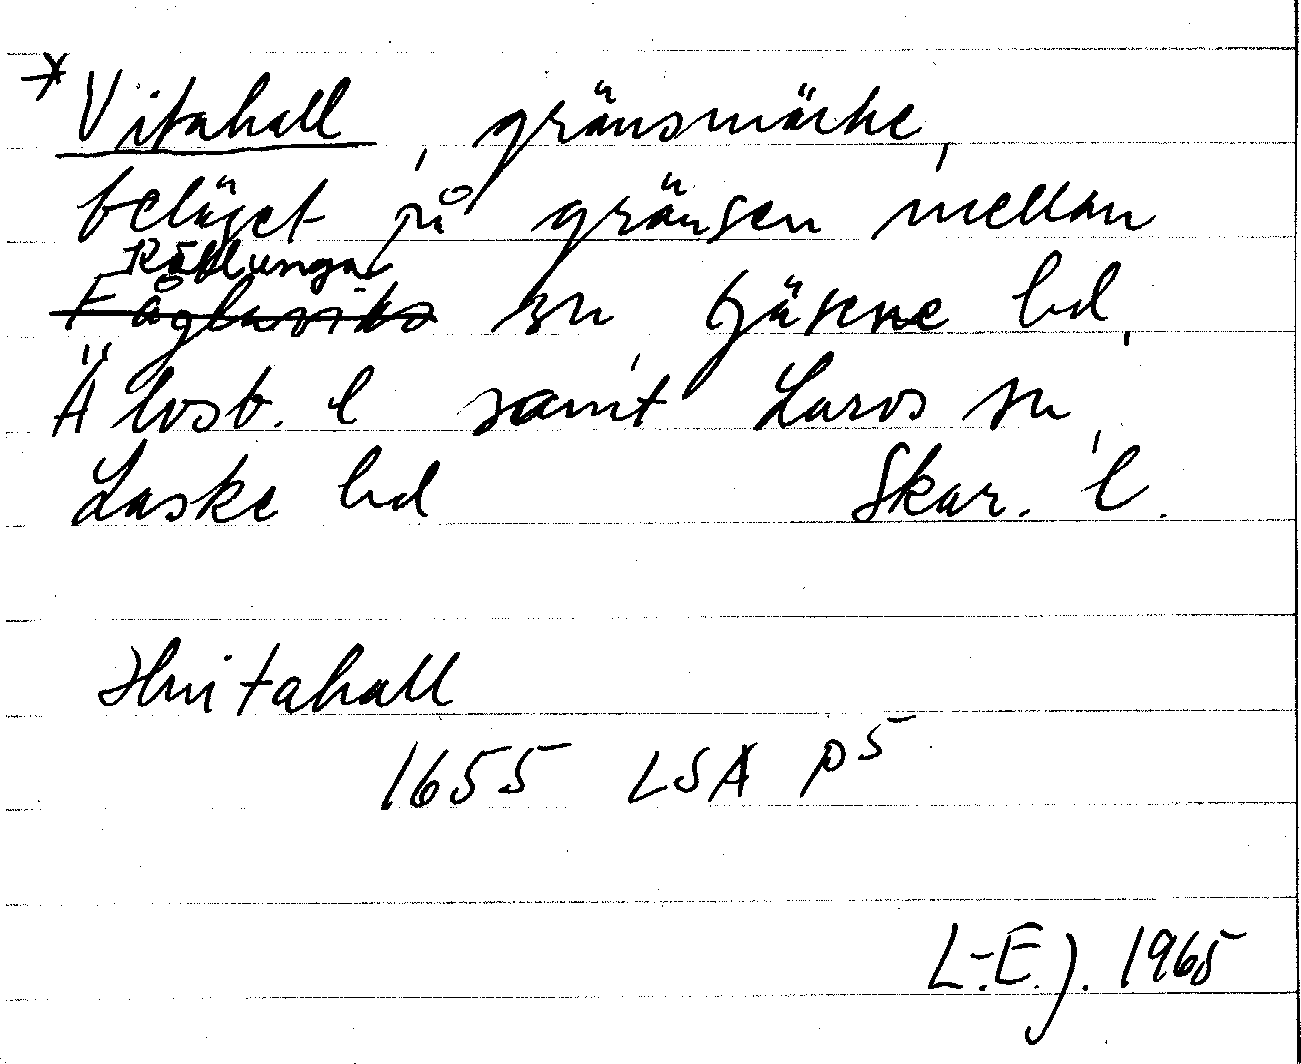 *Vitahall, gränsmärke,
beläget på gränsen mellan
Källunga
Fåglavik sn Gäsene hd,
Älvsb. l samt Larvs sn,
Laske hd Skar. l.
Hvitahall
1655 LSA p5
L-E.J. 1965